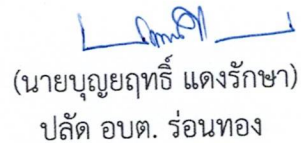 (นายบุญยฤทธิ์ แดงรักษา)
ปลัด อบต. ร่อนทอง